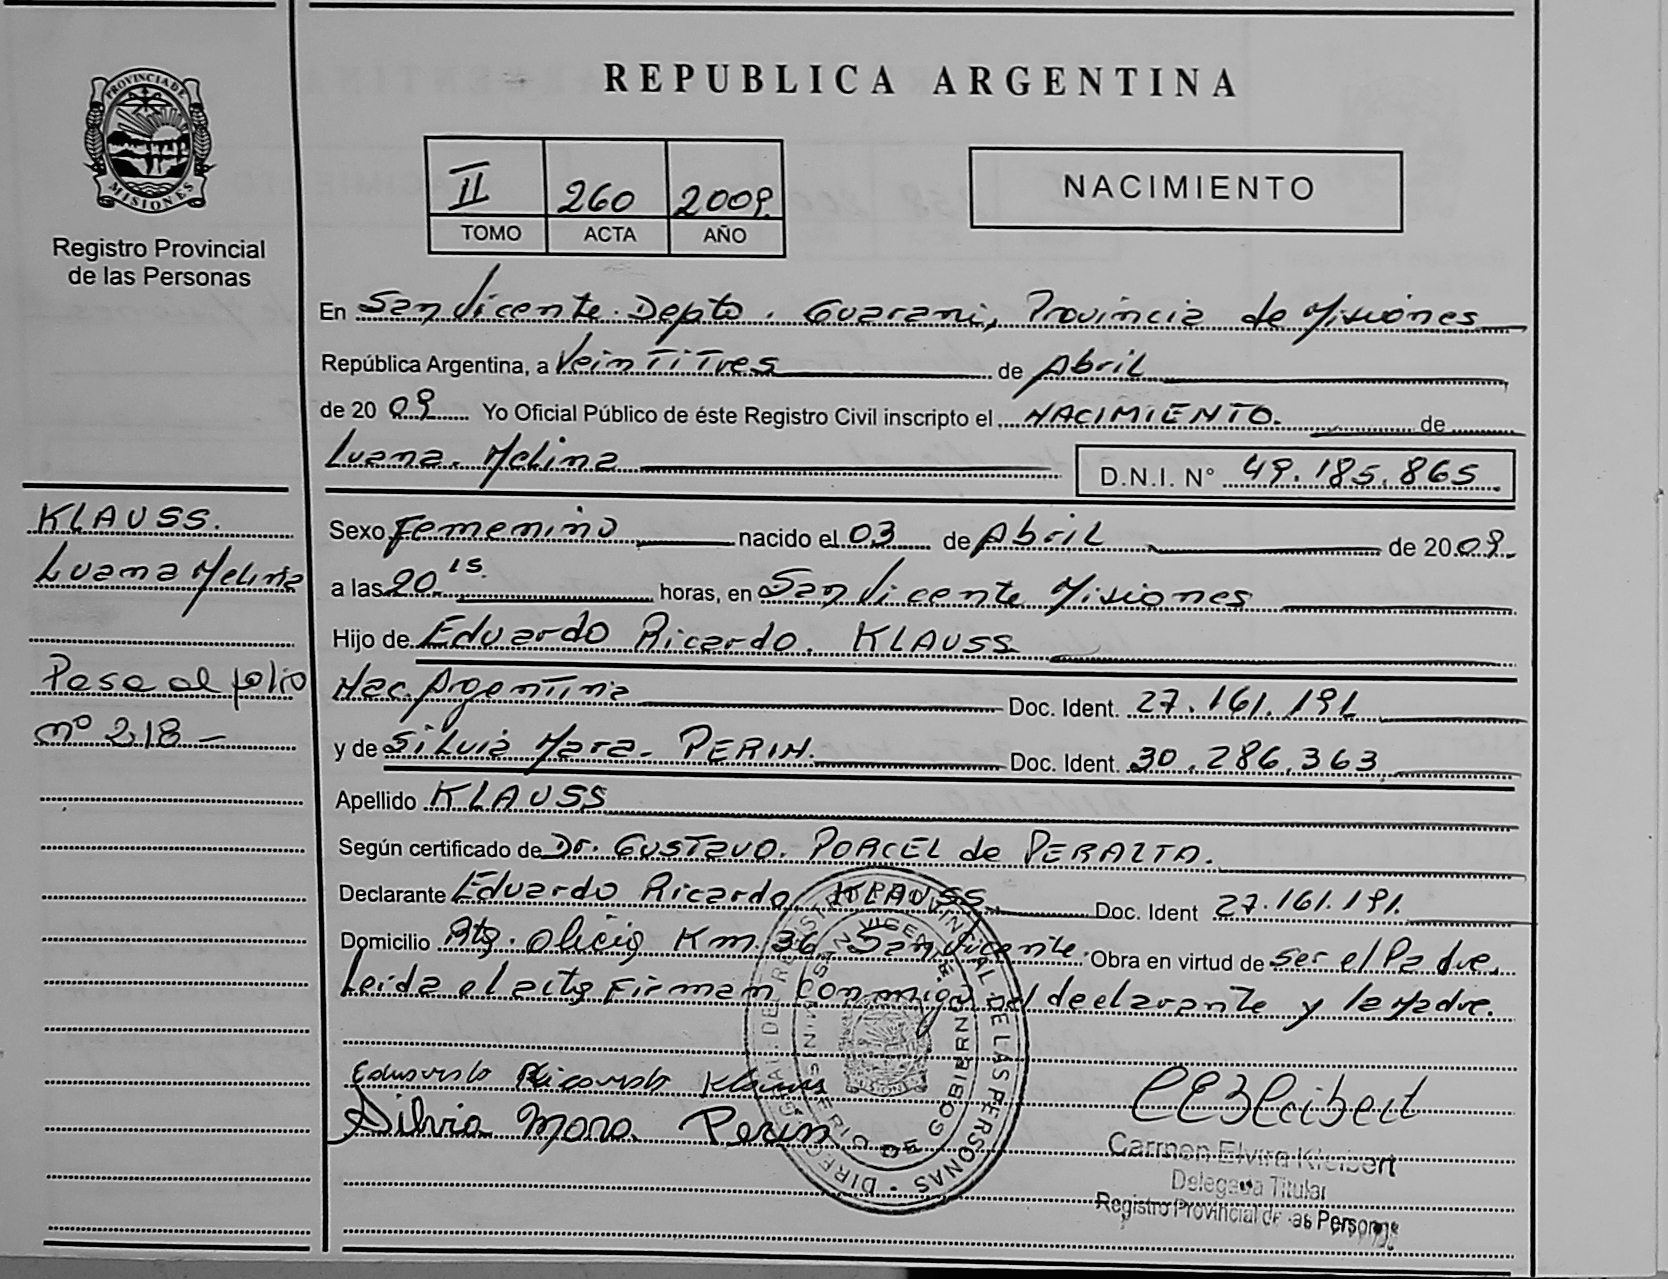 REPUBLICA ARGENTINA
PROVINCIA DE
MISIONES
Registro Provincial
de las Personas
II 260 2009.
TOMO ACTA AÑO
NACIMIENTO
En San Vicente. Depto. Guarani, Provincia de Misiones
República Argentina, a Veintitres de Abril
de 2009 Yo Oficial Público de éste Registro Civil inscripto el NACIMIENTO. de
Luana. Melina D.N.I. N° 49.185.865.
KLAUSS.
Luana Melina
Pasa al folio
nº 218 -
Sexo Femenino nacido el 03 de Abril de 2009.
a las 20.15. horas, en San Vicente Misiones
Hijo de Eduardo Ricardo. KLAUSS
Nac. Argentina Doc. Ident. 27.161.191
y de Silvia Mara. PERIN. Doc. Ident. 30.286.363
Apellido KLAUSS
Según certificado de Dr. GUSTAVO. PORCEL de PERALTA.
Declarante Eduardo Ricardo KLAUSS Doc. Ident 27.161.191.
Domicilio Km. 36 San Vicente. Obra en virtud de ser el Padre.
Leida el acta Firman conmigo el declarante y la Madre.
Eduardo Ricardo Klauss
Silvia Mara Perin
Carmen Elvira Kleibert
Delegada Titular
Registro Provincial de las Personas